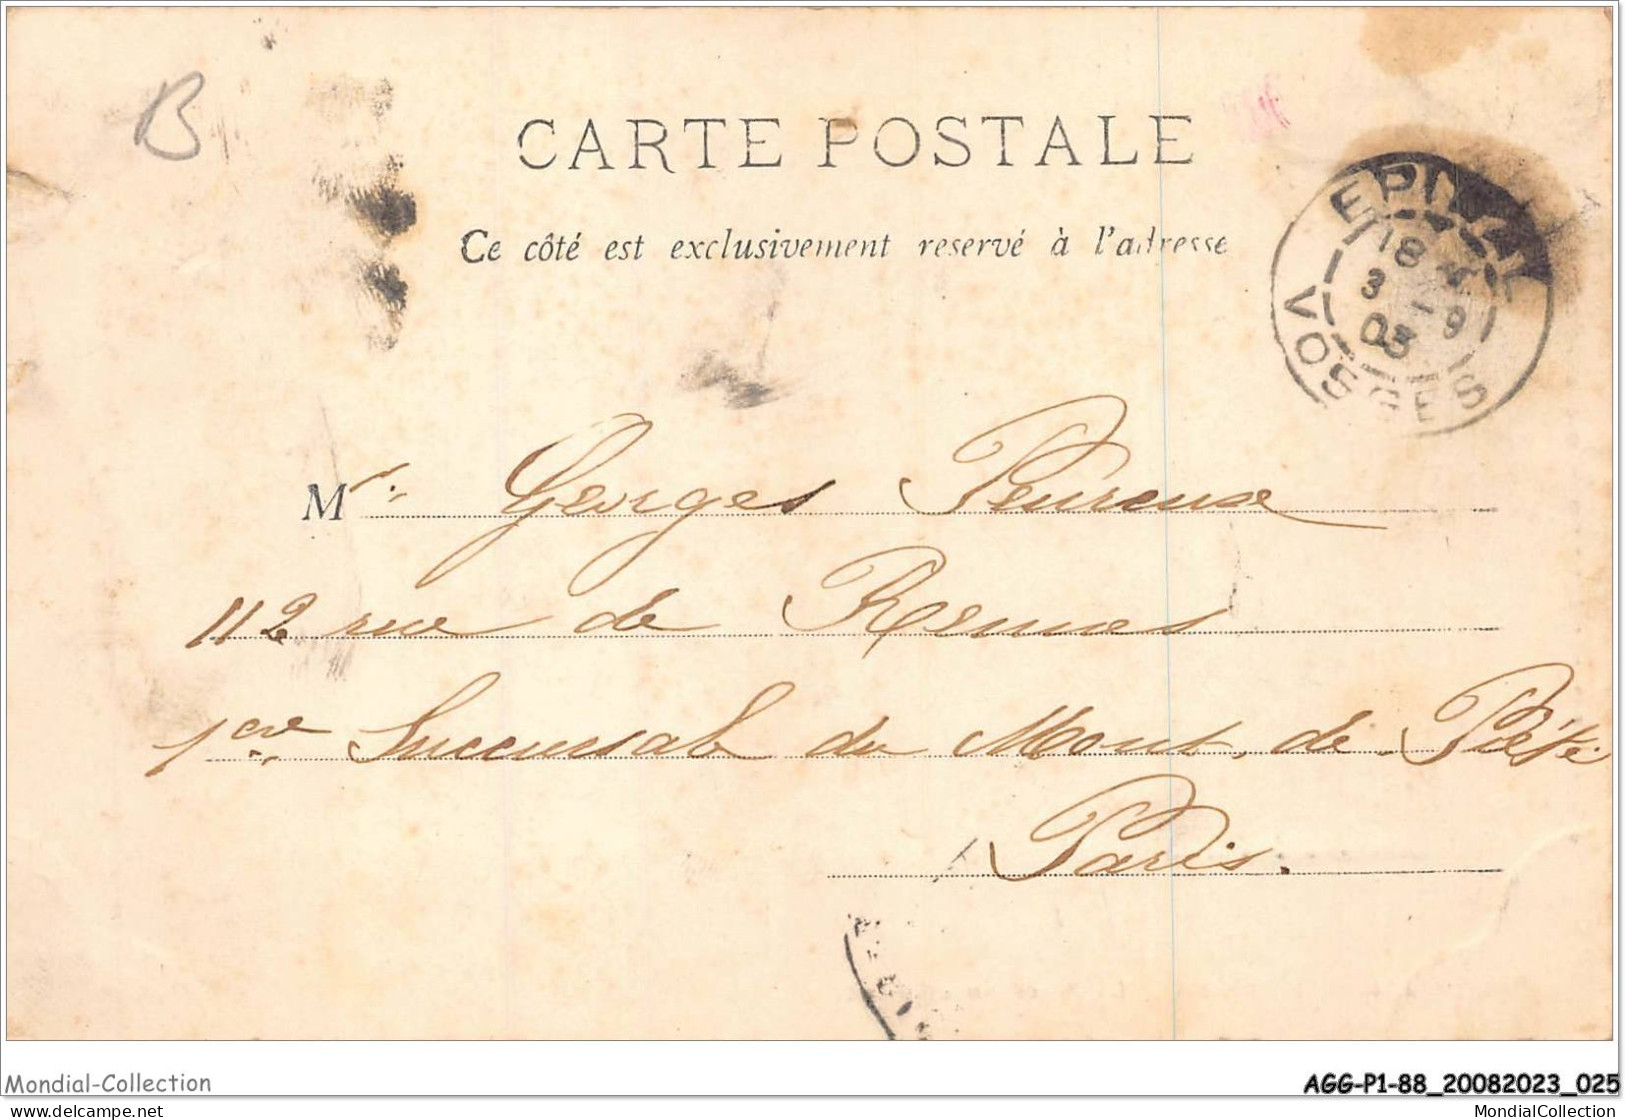 B
CARTE POSTALE
Ce côté est exclusivement reservé à l'adresse
EPINAL
18
3 -9
03
VOSGES
Mr. Georges Peureux
112 rue de Rennes
1ere Succursale du Mont. de. Piété
Paris.
Mondial-Collection
AGG-P1-88_20082023_025
www.delcampe.net
MondialCollection